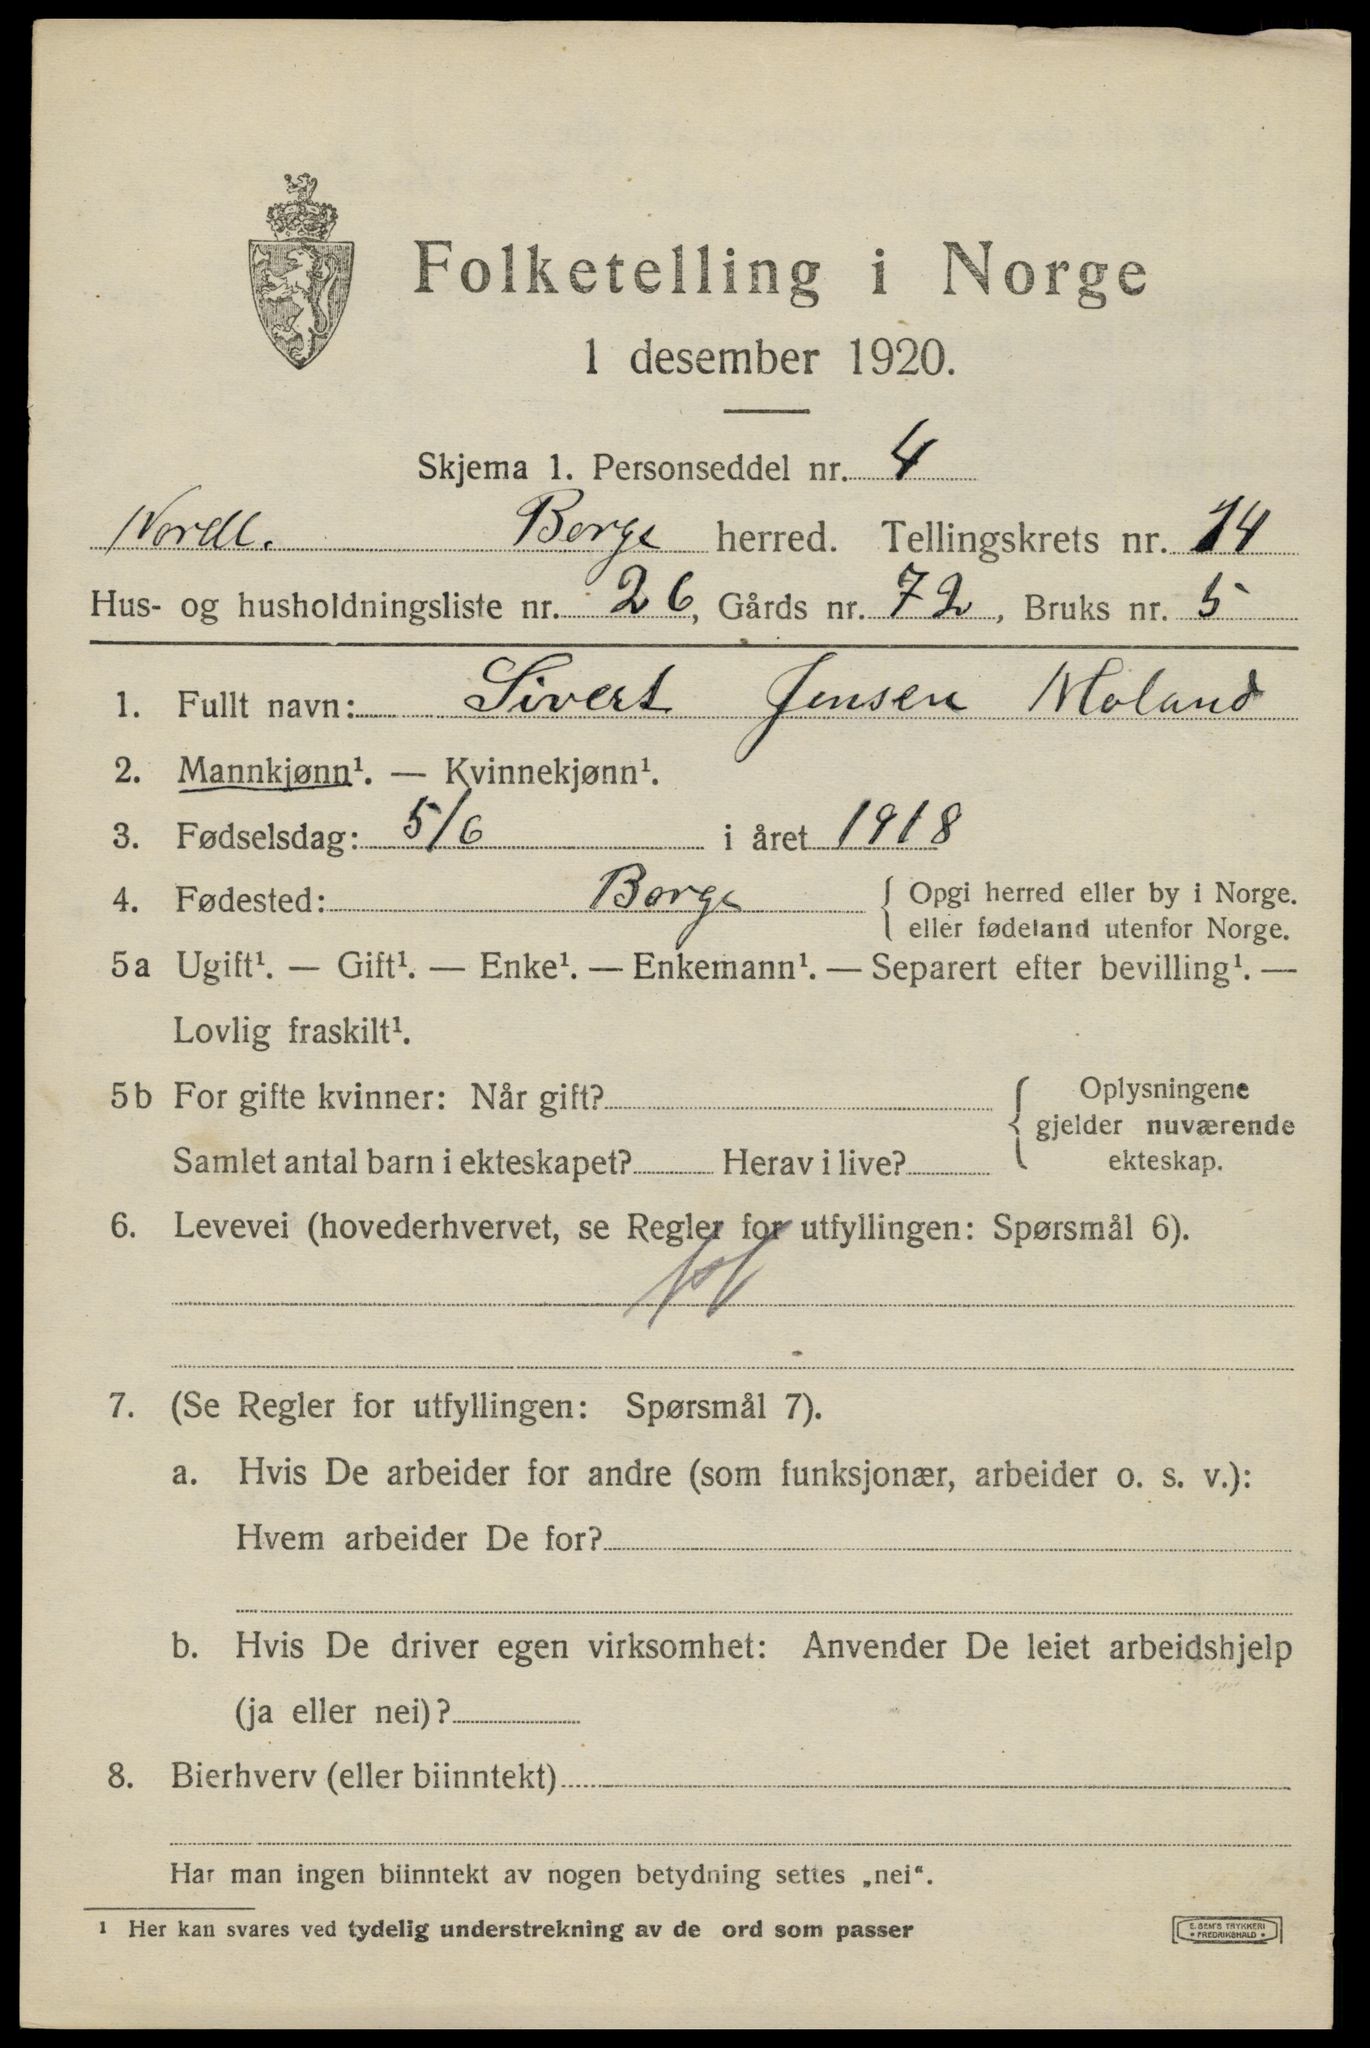 Folketelling i Norge
1 desember 1920.
Skjema 1. Personseddel nr. 4
Nordl. Borge herred. Tellingskrets nr. 14
Hus- og husholdningsliste nr. 26, Gårds nr. 72, Bruks nr. 5
1. Fullt navn: Sivert Jensen Moland
2. Mannkjønn¹. — Kvinnekjønn¹.
3. Fødselsdag: 5/6 i året 1918
4. Fødested: Borge { Opgi herred eller by i Norge.
eller fødeland utenfor Norge.
5a Ugift¹. — Gift¹. — Enke¹. — Enkemann¹. — Separert efter bevilling¹. —
Lovlig fraskilt¹.
5b For gifte kvinner: Når gift? { Oplysningene
gjelder nuværende
Samlet antal barn i ekteskapet? Herav i live? ekteskap.
6. Levevei (hovederhvervet, se Regler for utfyllingen: Spørsmål 6).
7. (Se Regler for utfyllingen: Spørsmål 7).
a. Hvis De arbeider for andre (som funksjonær, arbeider o. s. v.):
Hvem arbeider De for?
b. Hvis De driver egen virksomhet: Anvender De leiet arbeidshjelp
(ja eller nei)?
8. Bierhverv (eller biinntekt)
Har man ingen biinntekt av nogen betydning settes „nei“.
¹ Her kan svares ved tydelig understrekning av de ord som passer
E. SEM'S TRYKKERI
• FREDRIKSHALD •